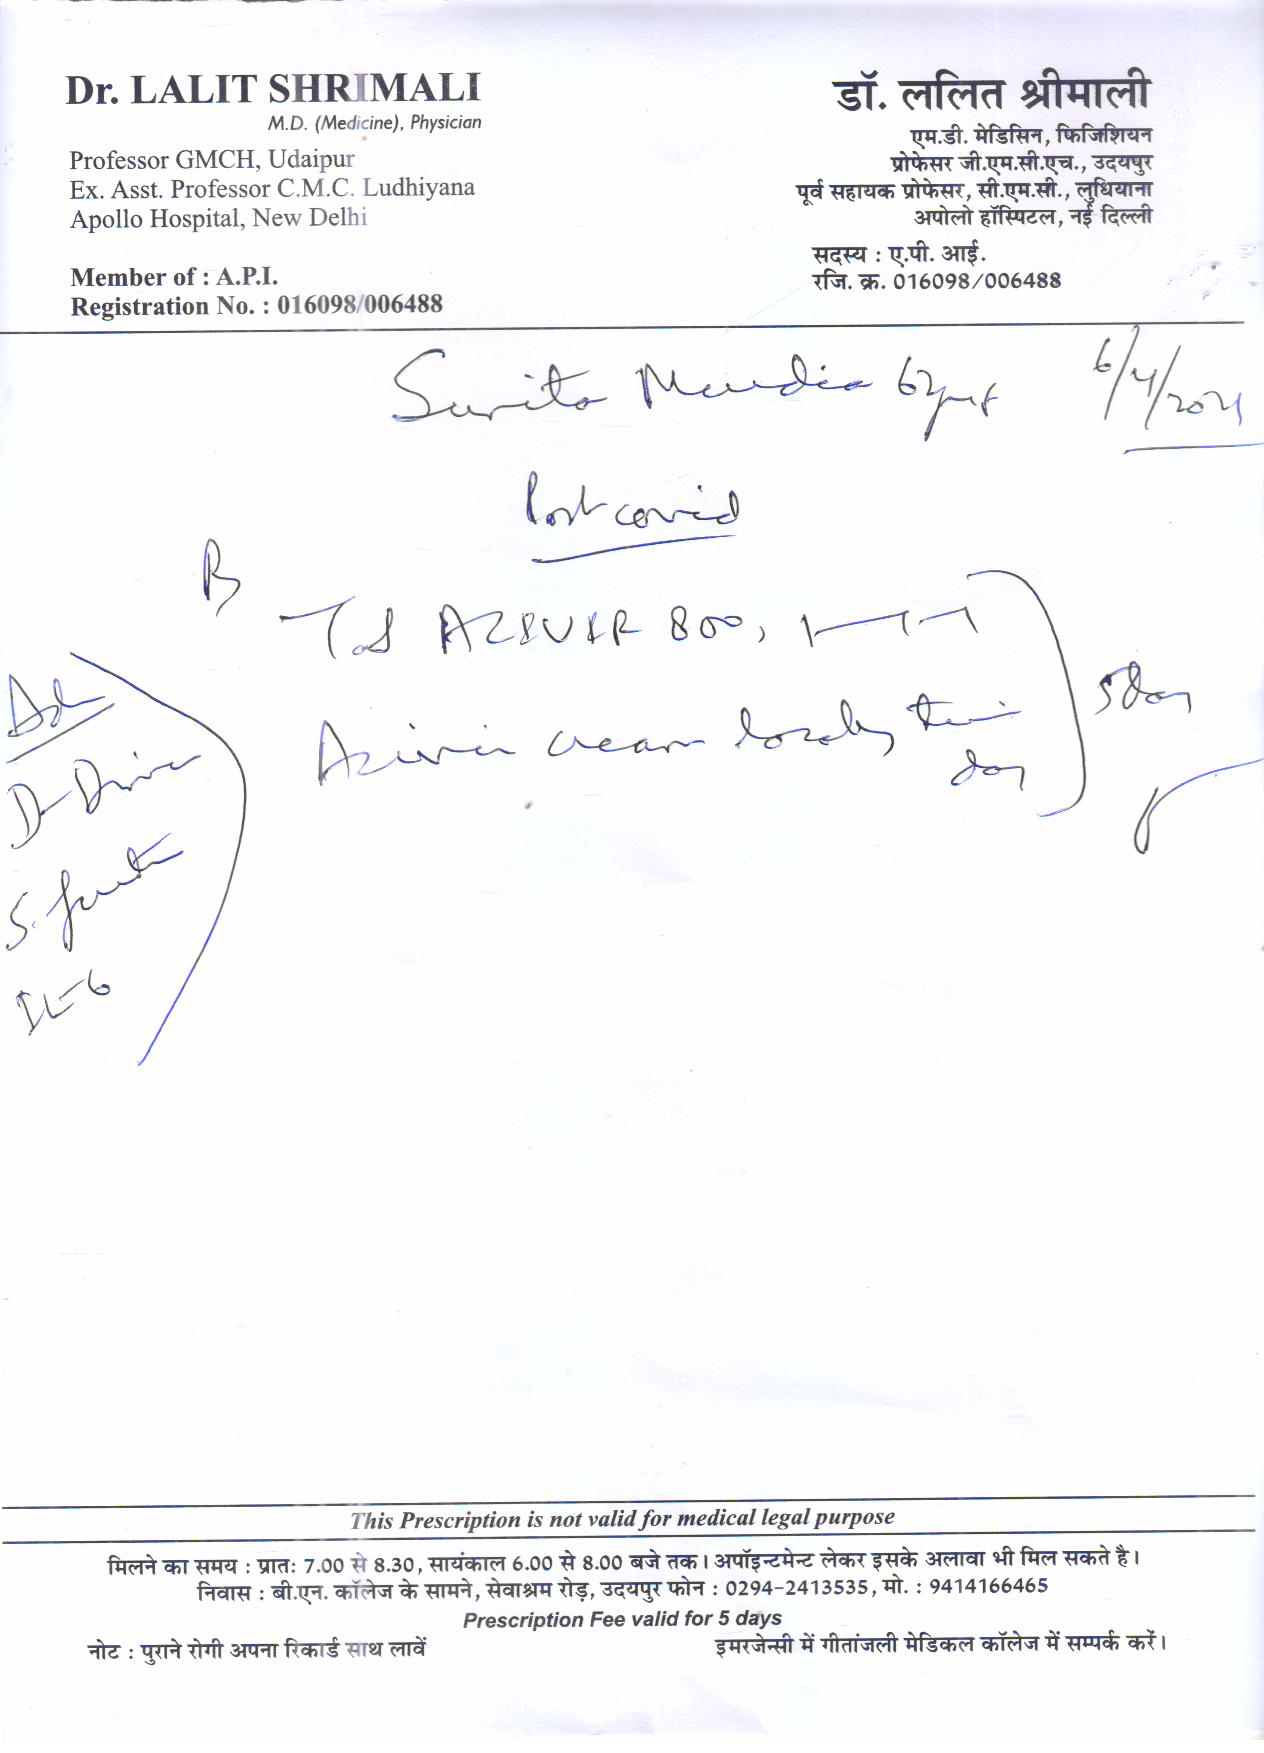 Dr. LALIT SHRIMALI
M.D. (Medicine), Physician
Professor GMCH, Udaipur
Ex. Asst. Professor C.M.C. Ludhiyana
Apollo Hospital, New Delhi
Member of : A.P.I.
Registration No. : 016098/006488
डॉ. ललित श्रीमाली
एम.डी. मेडिसिन, फिजिशियन
प्रोफेसर जी.एम.सी.एच., उदयपुर
पूर्व सहायक प्रोफेसर, सी.एम.सी., लुधियाना
अपोलो हॉस्पिटल, नई दिल्ली
सदस्य : ए.पी. आई.
रजि. क्र. 016098/006488
Sunita 6/4/2021
Post covid
800,
cream locally
day
5 day
IL-6
This Prescription is not valid for medical legal purpose
मिलने का समय : प्रातः 7.00 से 8.30, सायंकाल 6.00 से 8.00 बजे तक। अपॉइन्टमेन्ट लेकर इसके अलावा भी मिल सकते है।
निवास : बी.एन. कॉलेज के सामने, सेवाश्रम रोड़, उदयपुर फोन : 0294-2413535, मो. : 9414166465
Prescription Fee valid for 5 days
नोट : पुराने रोगी अपना रिकार्ड साथ लावें
इमरजेन्सी में गीतांजली मेडिकल कॉलेज में सम्पर्क करें।